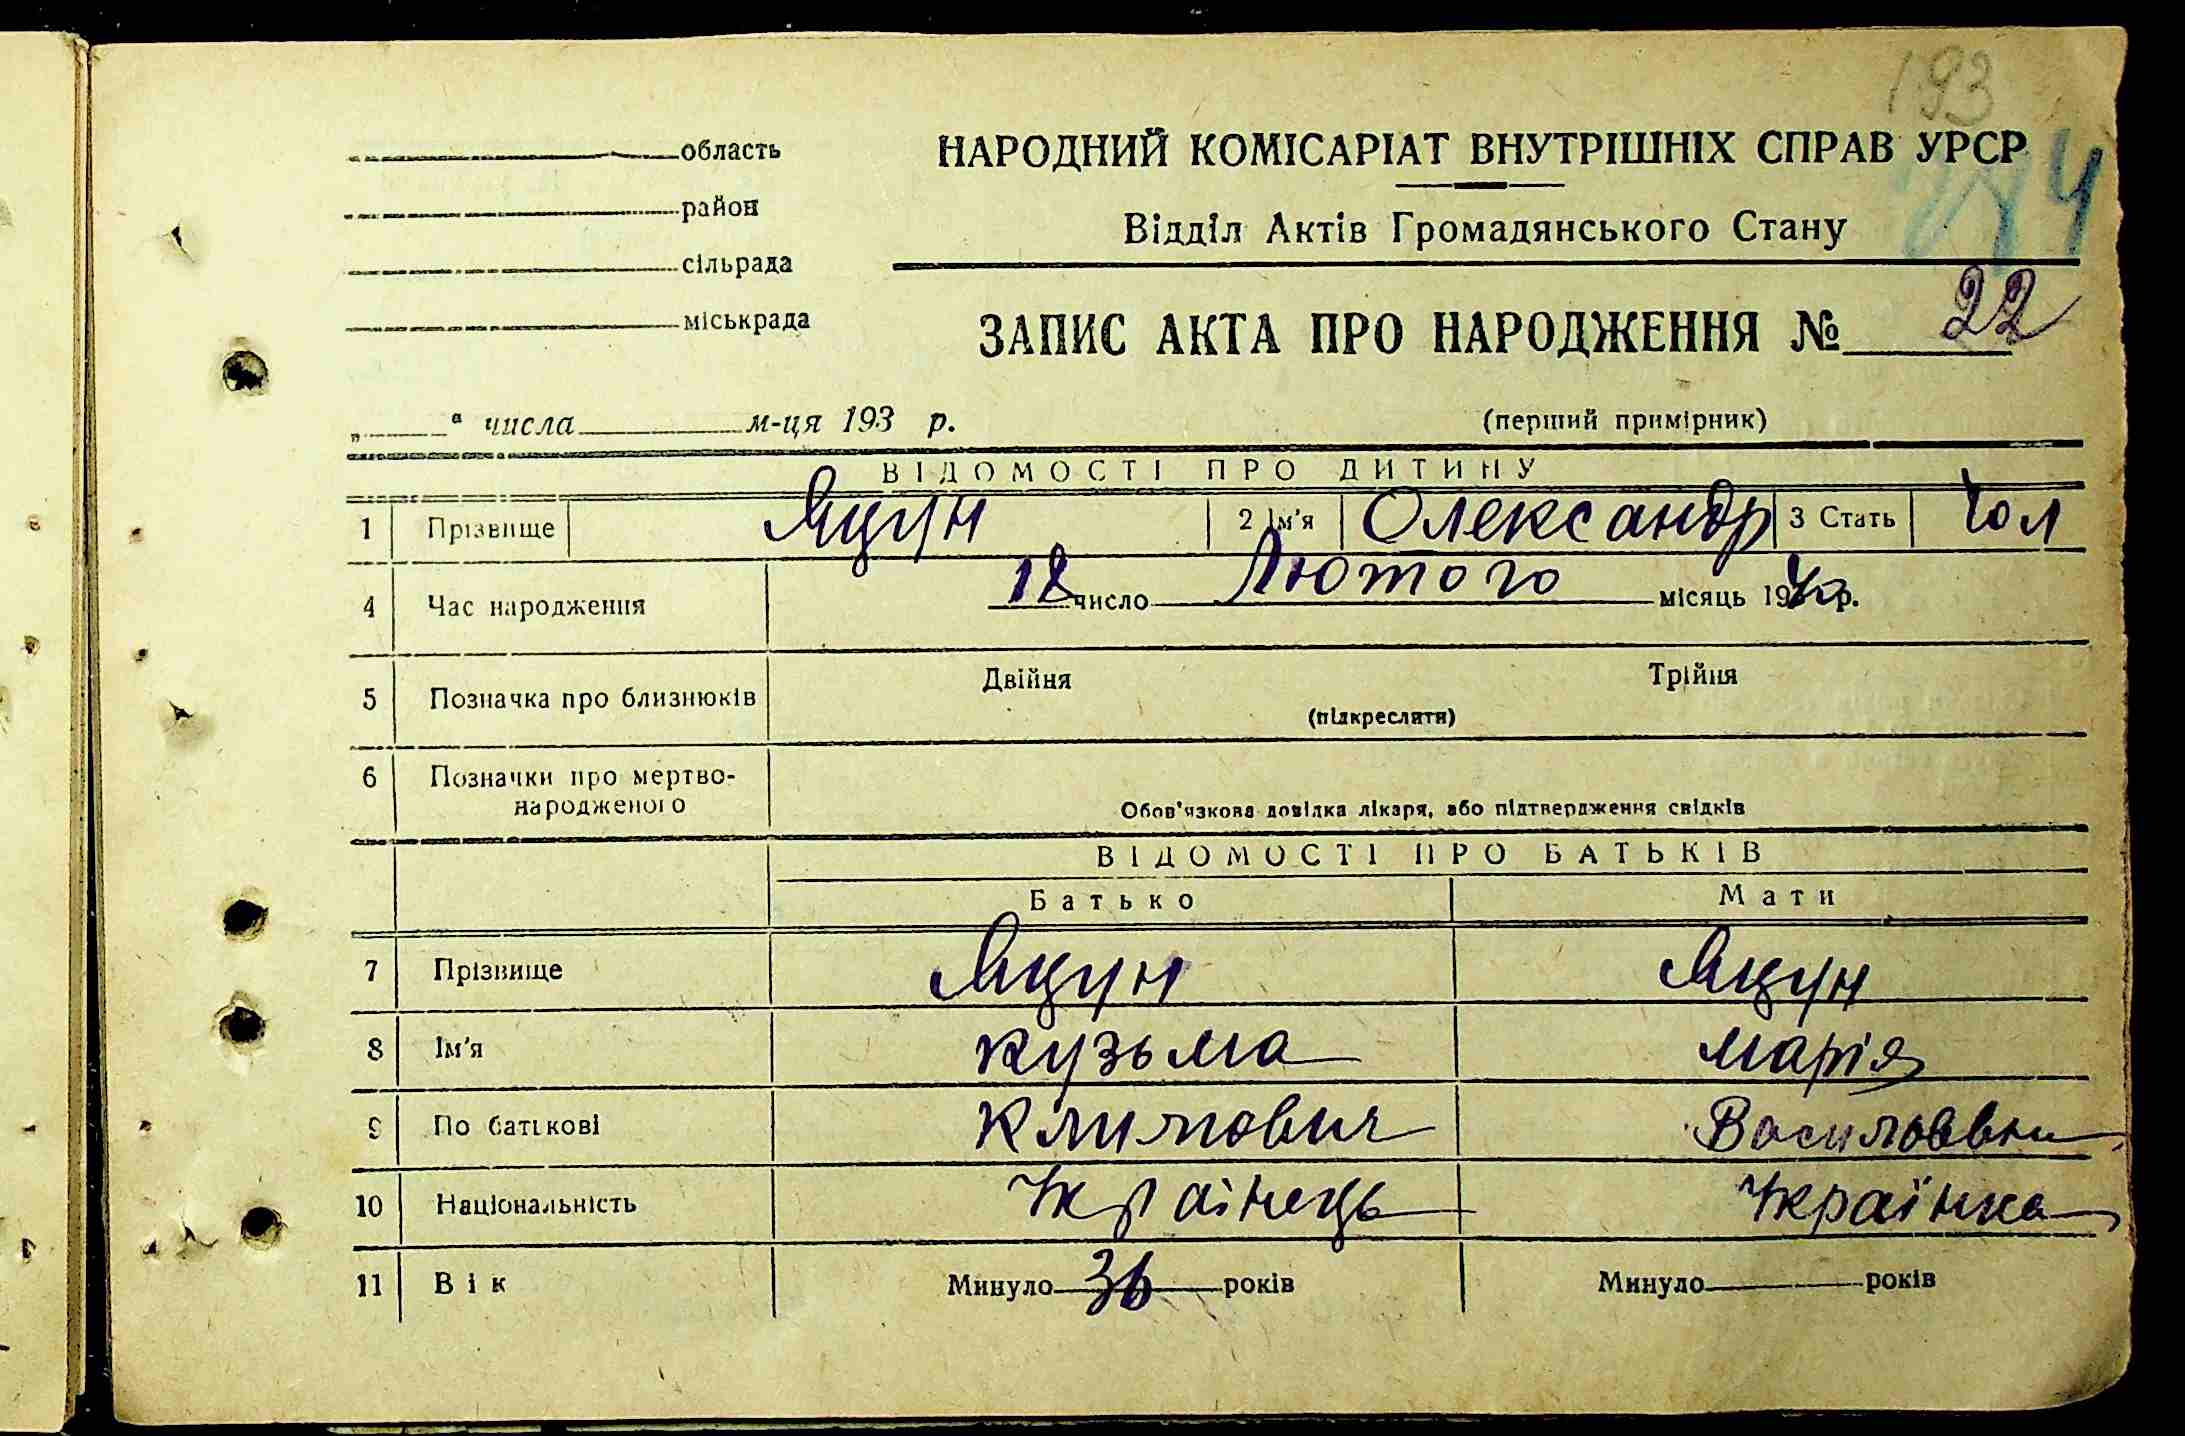 193
область
НАРОДНИЙ КОМІСАРІАТ ВНУТРІШНІХ СПРАВ УРСР
район
Відділ Актів Громадянського Стану
сільрада
міськрада
ЗАПИС АКТА ПРО НАРОДЖЕННЯ № 22
„ “ числа м-ця 193 р.
(перший примірник)
ВІДОМОСТІ ПРО ДИТИНУ
1 Прізвище Яцун 2 Ім'я Олександр 3 Стать Чол
4 Час народження 18 число Лютого місяць р.
5 Позначка про близнюків Двійня Трійня
(підкреслити)
6 Позначки про мертво-
народженого
Обов'язкова довідка лікаря, або підтвердження свідків
ВІДОМОСТІ ПРО БАТЬКІВ
Батько Мати
7 Прізвище Яцун Яцун
8 Ім'я Кузьма Марія
9 По батькові Климович Василовна
10 Національність Українець Українка
11 Вік Минуло 36 років Минуло років